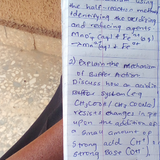 the half-reaction method
Identifying the oxidising
and reducing agents
MnO₄⁻(aq) + Fe²⁺(aq)
→ Mn²⁺ + Fe³⁺
2) Explain the mechanism
of Buffer Action
Discuss how a acidic
Buffer system (eg
CH₃COOH / CH₃COONa)
resists changes in pH
upon the addition of
a small amount of
Strong acid (H⁺)
strong Base (OH⁻)